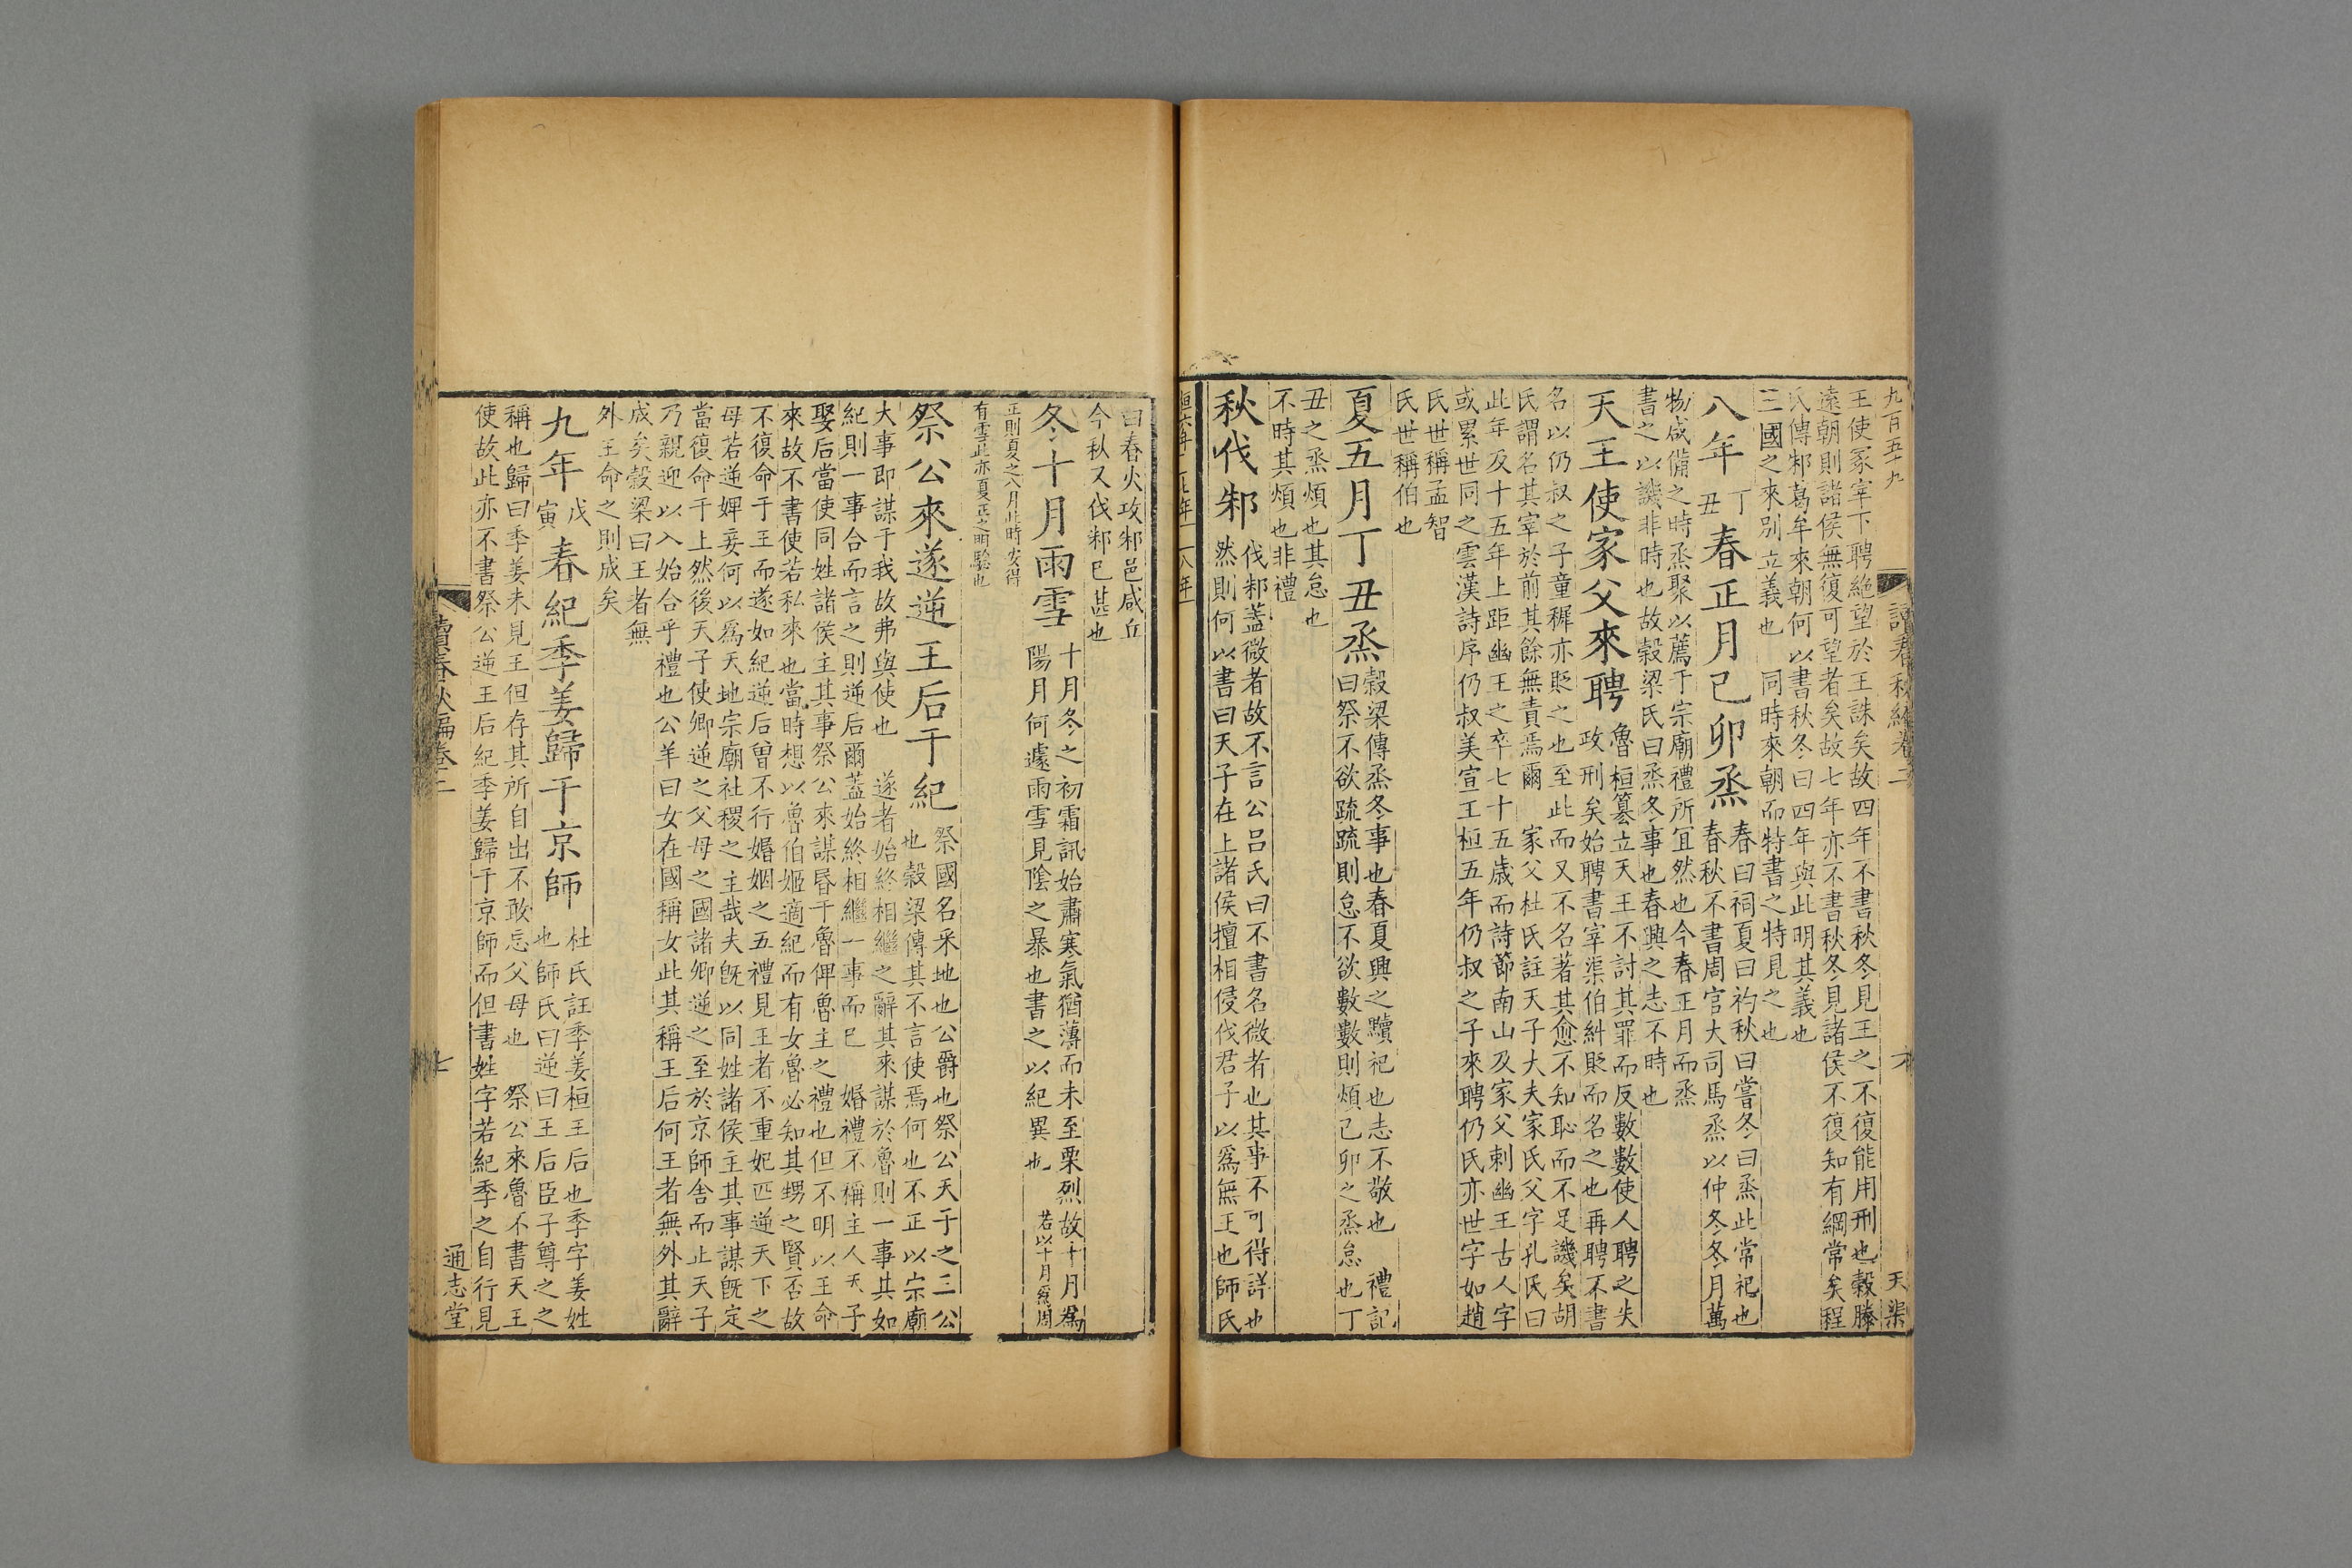 九百五十九
讀春秋編卷二
六
天渠
王使冢宰下聘絶望於王誅矣故四年不書秋冬見王之不復能用刑也榖滕
遠朝則諸侯無復可望者矣故七年亦不書秋冬見諸侯不復知有綱常矣程
氏傳邾葛牟來朝何以書秋冬曰四年與此明其義也
三國之來别立義也 同時來朝而特書之特見之也
八年丁丑春正月己卯烝
春曰祠夏曰礿秋曰嘗冬曰烝此常祀也
春秋不書周官大司馬烝以仲冬冬月萬
物咸備之時烝聚以薦于宗廟禮所宜然也今春正月而烝
書之以譏非時也故榖梁氏曰烝冬事也春興之志不時也
天王使家父來聘
魯桓簒立天王不討其罪而反數數使人聘之失
政刑矣始聘書宰渠伯糾貶而名之也再聘不書
名以仍叔之子童穉亦貶之也至此而又不名著其愈不知恥而不足譏矣胡
氏謂名其宰於前其餘無責焉爾 家父杜氏註天子大夫家氏父字孔氏曰
此年及十五年上距幽王之卒七十五歲而詩節南山及家父刺幽王古人字
或累世同之雲漢詩序仍叔美宣王桓五年仍叔之子來聘仍氏亦世字如趙
氏世稱孟智
氏世稱伯也
夏五月丁丑烝
榖梁傳烝冬事也春夏興之黷祀也志不敬也 禮記
曰祭不欲疏疏則怠不欲數數則煩己卯之烝怠也丁
丑之烝煩也其怠也
不時其煩也非禮
秋伐邾
伐邾蓋微者故不言公呂氏曰不書名微者也其事不可得詳也
然則何以書曰天子在上諸侯擅相侵伐君子以爲無王也師氏
曰春火攻邾邑咸丘
今秋又伐邾已甚也
冬十月雨雪
十月冬之初霜訊始肅寒氣猶薄而未至栗烈故十月爲
陽月何遽雨雪見陰之暴也書之以紀異也 若以十月爲周
正則夏之八月此時安得
有雪此亦夏正之明驗也
祭公來遂逆王后于紀
祭國名采地也公爵也祭公天子之三公
也榖梁傳其不言使焉何也不正以宗廟
大事即謀于我故弗與使也 遂者始終相繼之辭其來謀於魯則一事其如
紀則一事合而言之則逆后爾蓋始終相繼一事而已 婚禮不稱主人天子
娶后當使同姓諸侯主其事祭公來謀昬于魯俾魯主之禮也但不明以王命
來故不書使若私來也當時想以魯伯姬適紀而有女魯必知其甥之賢否故
不復命于王而遂如紀逆后曾不行婚姻之五禮見王者不重妃匹逆天下之
母若逆婢妾何以爲天地宗廟社稷之主哉夫旣以同姓諸侯主其事謀旣定
當復命于上然後天子使卿逆之父母之國諸卿逆之至於京師舍而止天子
乃親迎以入始合乎禮也公羊曰女在國稱女此其稱王后何王者無外其辭
成矣榖梁曰王者無
外王命之則成矣
九年戊寅春紀季姜歸于京師
杜氏註季姜桓王后也季字姜姓
也師氏曰逆曰王后臣子尊之之
稱也歸曰季姜未見王但存其所自出不敢忘父母也 祭公來魯不書天王
使故此亦不書祭公逆王后紀季姜歸于京師而但書姓字若紀季之自行見
讀春秋編卷二
七
通志堂